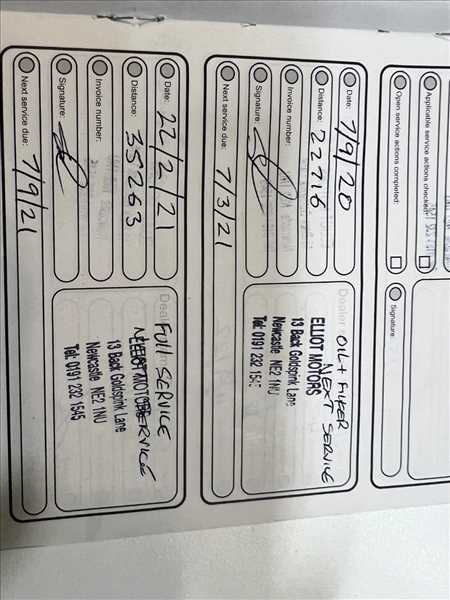 Applicable service actions checked:
Open service actions completed:
Signature
Date: 7/9/20
Distance: 22716
Invoice number:
Signature:
Next service due: 7/3/21
Dealer
OIL + FILTER
NEXT SERVICE
ELLIOT MOTORS
13 Back Goldspink Lane
Newcastle NE2 1NU
Tel: 0191 232 1545
Date: 22/2/21
Distance: 35263
Invoice number:
Signature:
Next service due: 7/9/21
FULL SERVICE
13 Back Goldspink Lane
Newcastle NE2 1NU
Tel: 0191 232 1545